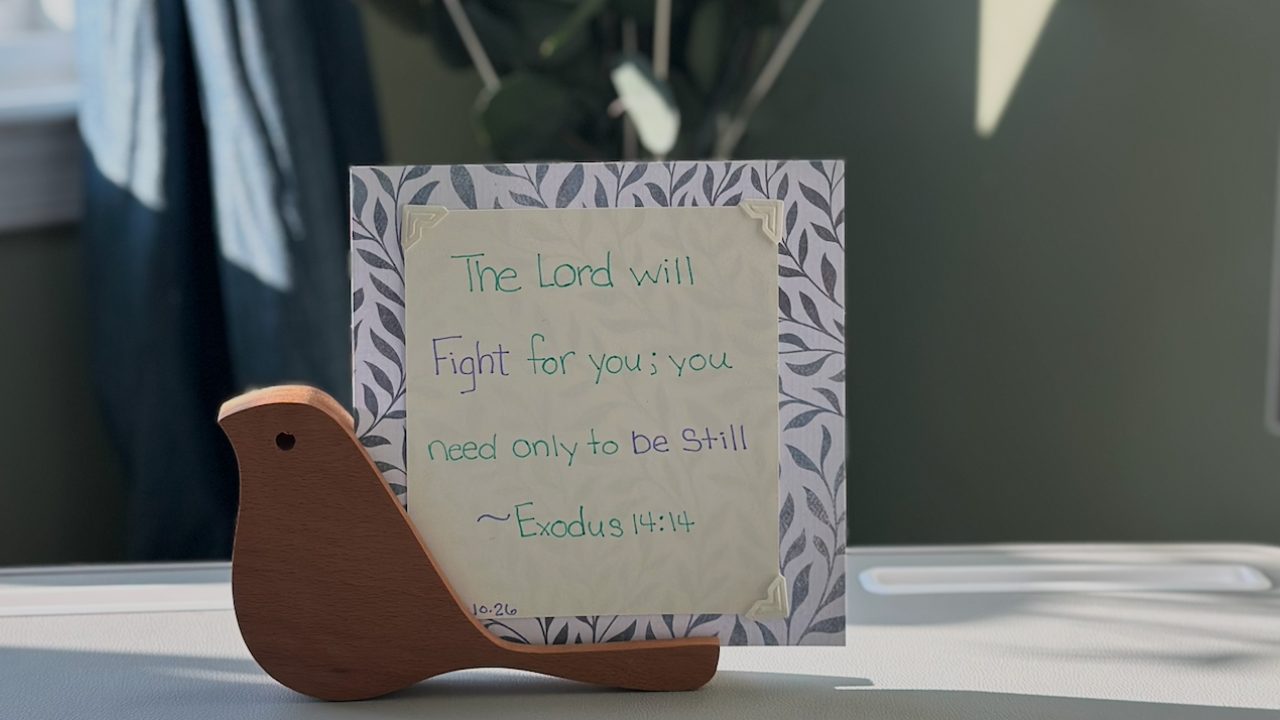 The Lord will
Fight for you; you
need only to be Still
~Exodus 14:14
10.26